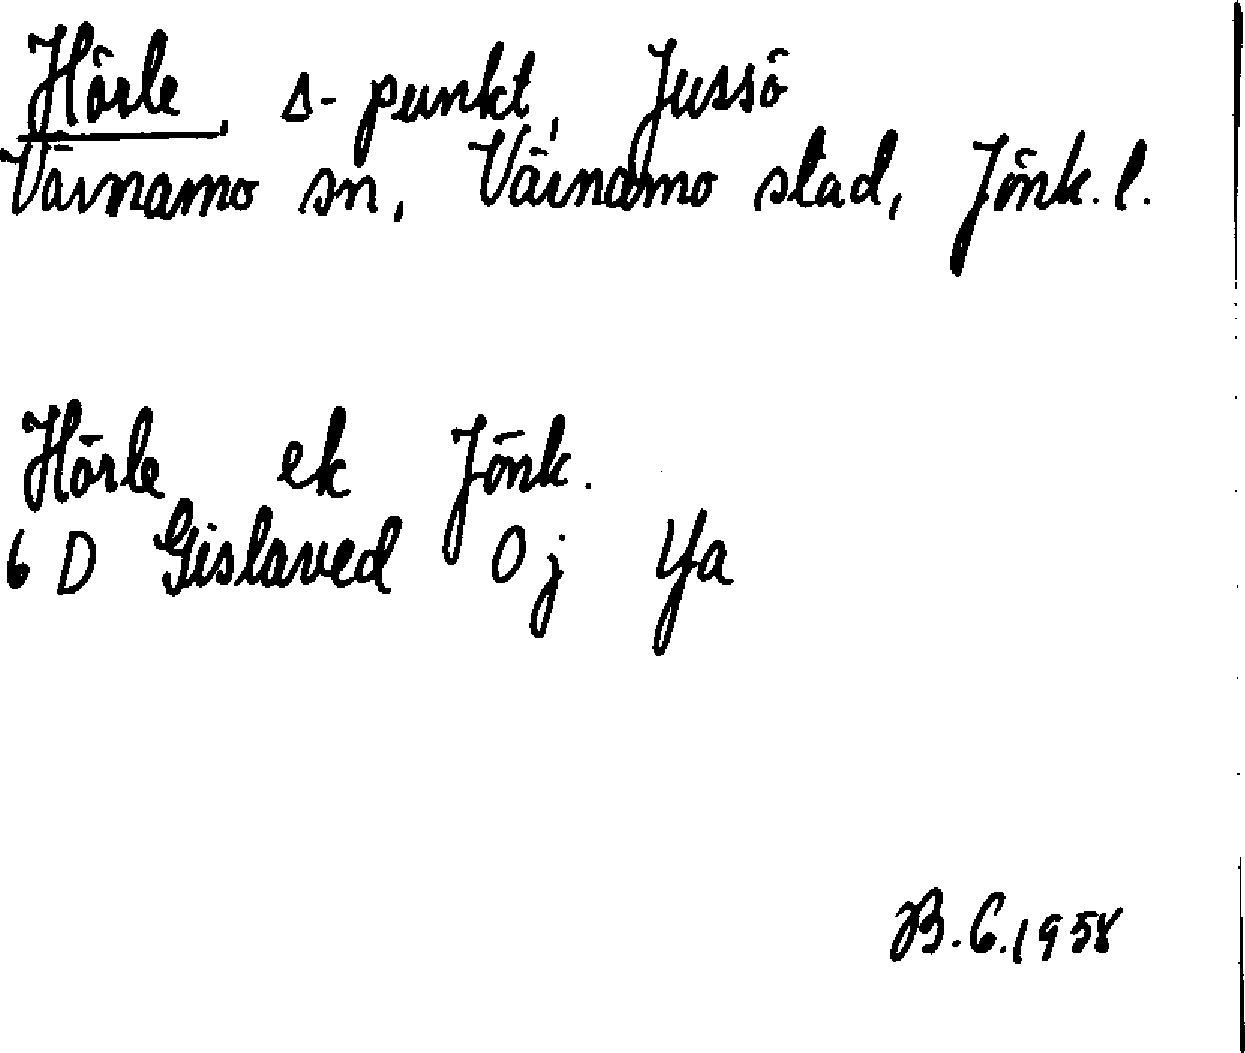 Hörle, Δ-punkt, Jussö
Värnamo sn, Värnamo stad, Jönk. l.
Hörle ek Jönk.
6 D Gislaved 0 j Ya
B.C.1958